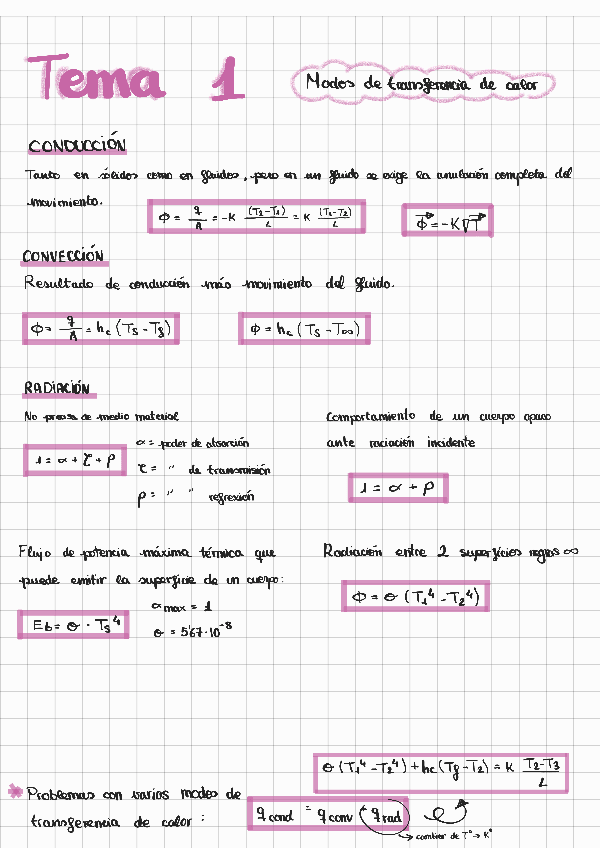 Tema 1
Modos de transferencia de calor
CONDUCCIÓN
Tanto en sólidos como en fluidos, pero en un fluido se exige la anulación completa del
movimiento.
Φ = q/A = -K (T2-T1)/L = K (T1-T2)/L
Φ = -K∇T
CONVECCIÓN
Resultado de conducción más movimiento del fluido.
Φ = q/A = hc (Ts - Tf)
Φ = hc (Ts - T∞)
RADIACIÓN
No precisa de medio material
1 = α + τ + ρ
α = poder de absorción
τ = " de transmisión
ρ = " " reflexión
Comportamiento de un cuerpo opaco
ante radiación incidente
1 = α + ρ
Flujo de potencia máxima térmica que
puede emitir la superficie de un cuerpo:
Eb = σ · Ts⁴
αmax = 1
σ = 5'67·10⁻⁸
Radiación entre 2 superficies negras ∞
Φ = σ (T1⁴ - T2⁴)
σ (T1⁴ - T2⁴) + hc (Tf - T2) = K (T2-T3)/L
* Problemas con varios modos de
transferencia de calor :
q cond = q conv + q rad
cambiar de Tº → Kº